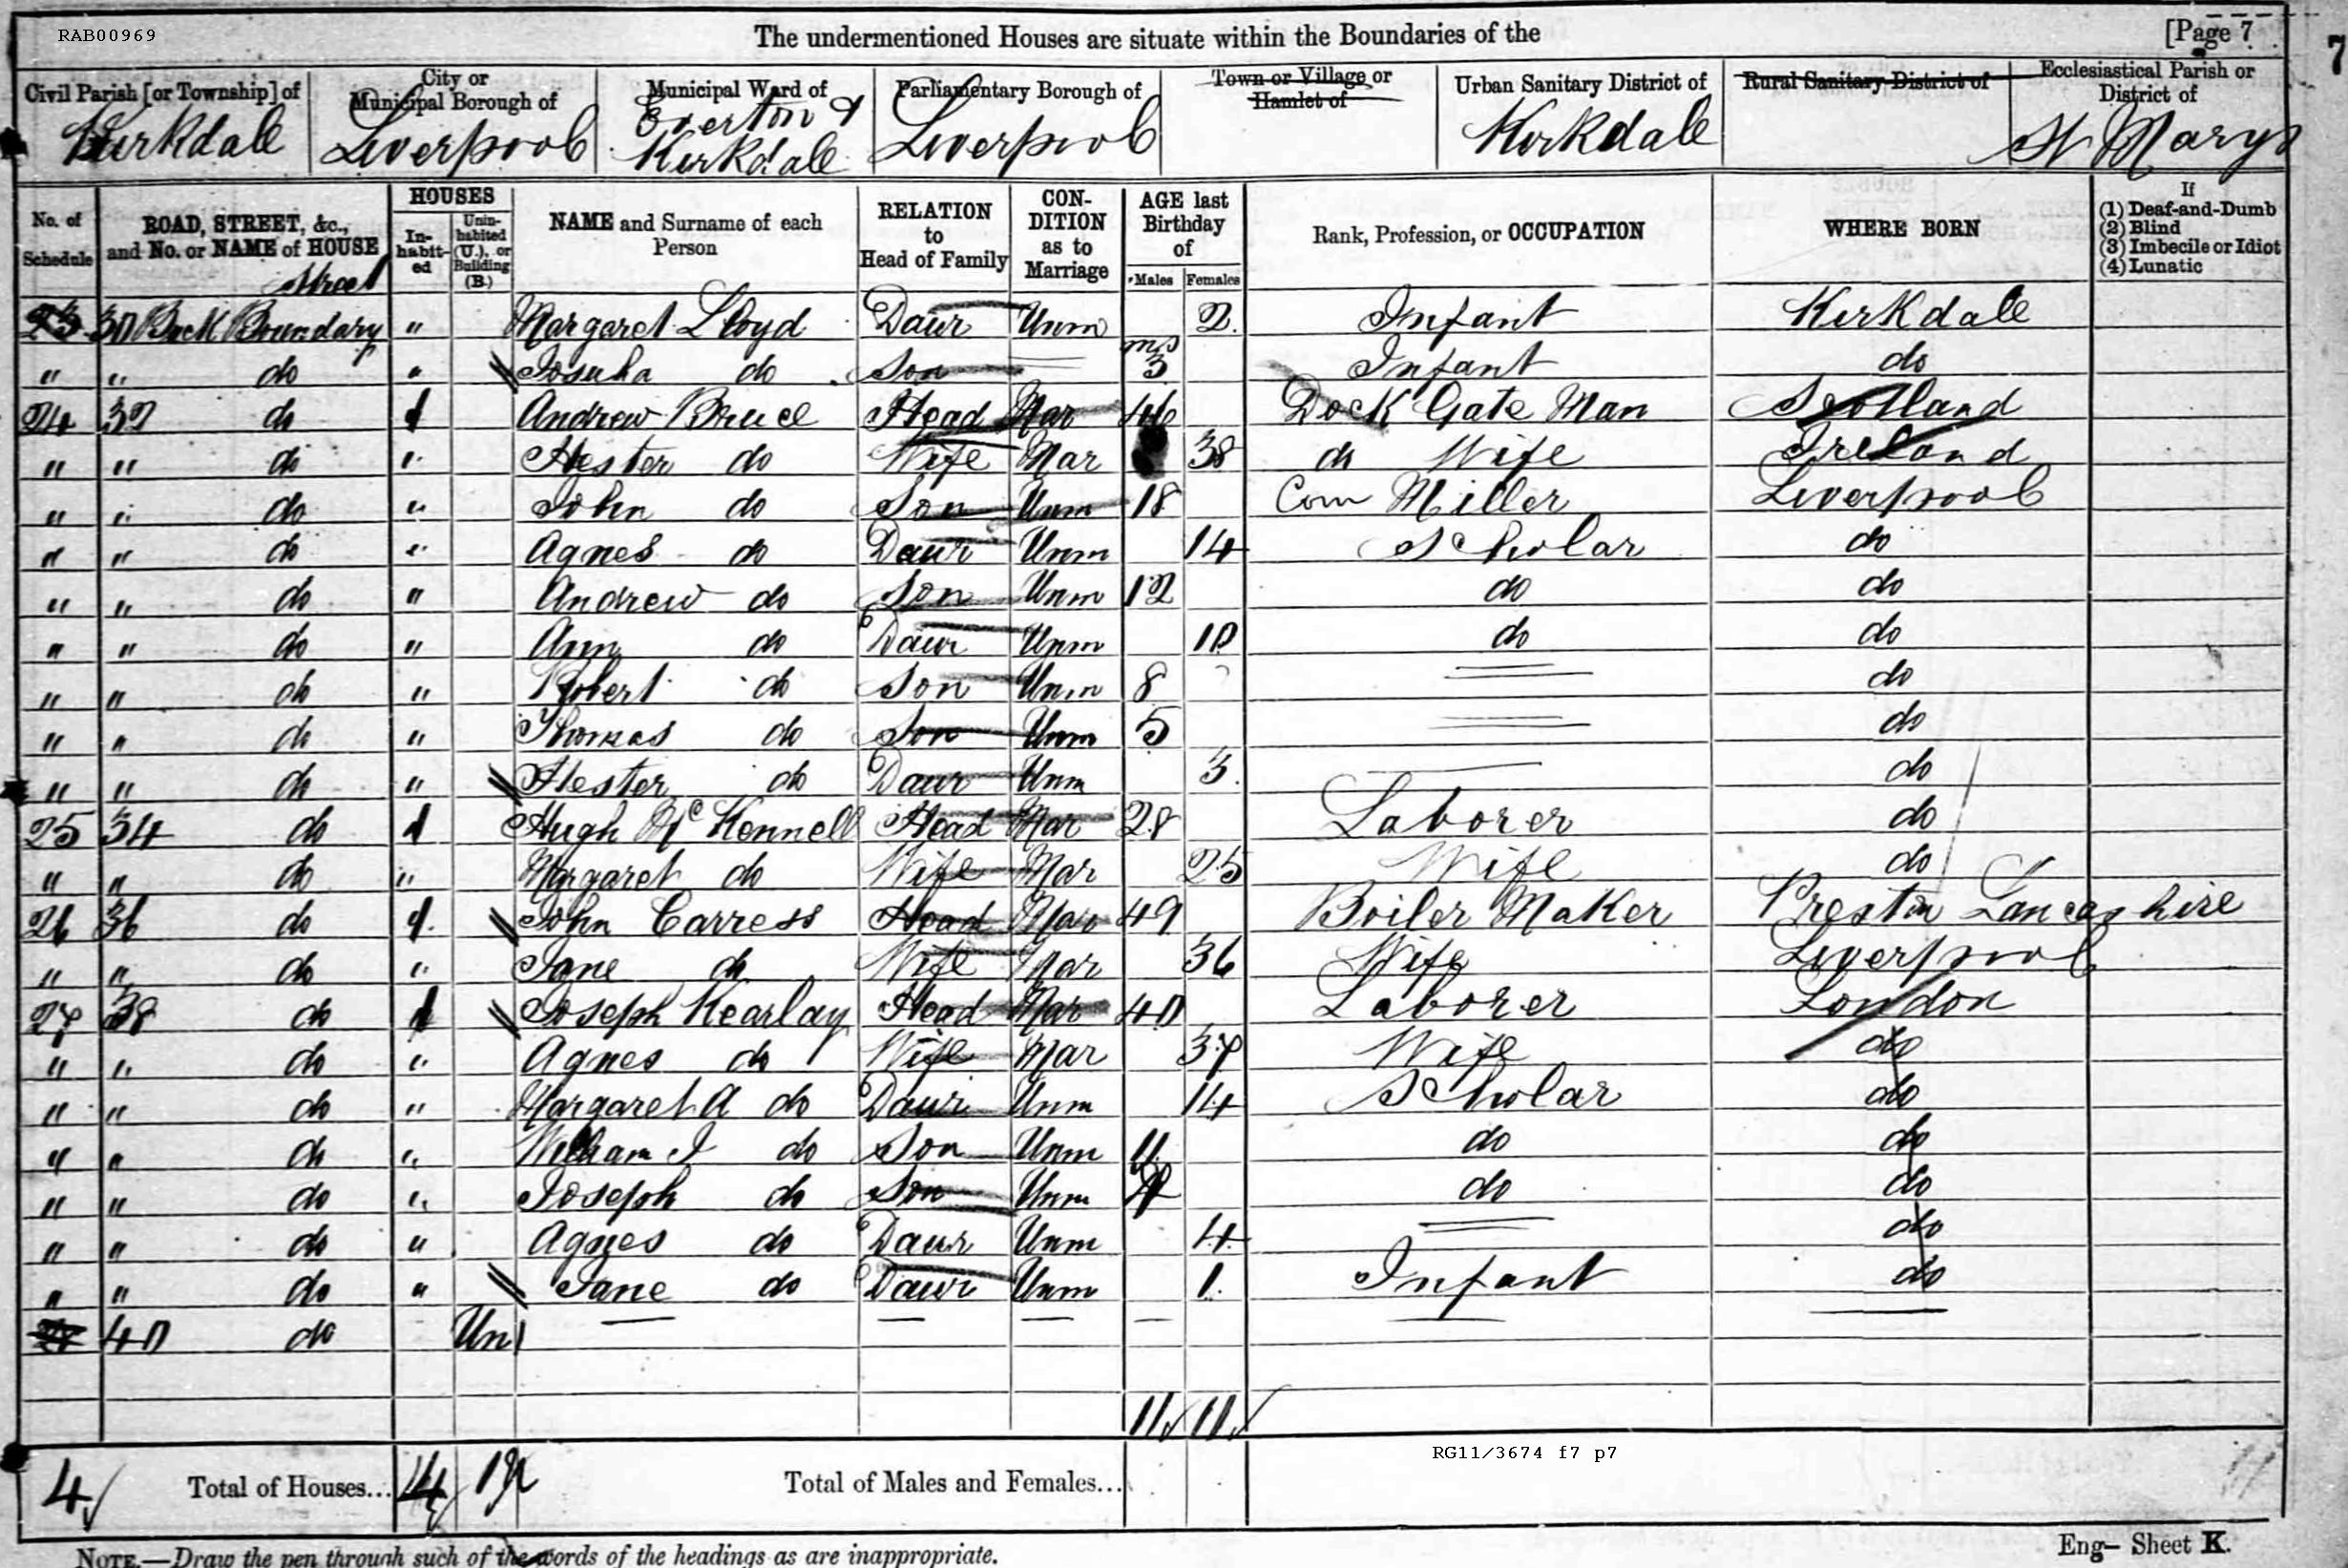 RAB00969
The undermentioned Houses are situate within the Boundaries of the [Page 7
7
Civil Parish [or Township] of City or Municipal Borough of Municipal Ward of Parliamentary Borough of Town or Village or Hamlet of Urban Sanitary District of Rural Sanitary District of Ecclesiastical Parish or District of
Kirkdale Liverpool Everton & Kirkdale Liverpool Kirkdale St Marys
No. of Schedule ROAD, STREET, &c., and No. or NAME of HOUSE HOUSES Inhabited Uninhabited (U.), or Building (B.) NAME and Surname of each Person RELATION to Head of Family CONDITION as to Marriage AGE last Birthday of Males Females Rank, Profession, or OCCUPATION WHERE BORN If (1) Deaf-and-Dumb (2) Blind (3) Imbecile or Idiot (4) Lunatic
Street
23 30 Back Boundary " Margaret Lloyd Daur Unm 2 Infant Kirkdale
" " do " Josuha do Son 3 mos Infant do
24 32 do 1 Andrew Bruce Head Mar 46 Dock Gate Man Scotland
" " do " Hester do Wife Mar 38 do Wife Ireland
" " do " John do Son Unm 18 Corn Miller Liverpool
" " do " Agnes do Daur Unm 14 Scholar do
" " do " Andrew do Son Unm 12 do do
" " do " Ann do Daur Unm 10 do do
" " do " Robert do Son Unm 8 do
" " do " Thomas do Son Unm 5 do
" " do " Hester do Daur Unm 3 do
25 34 do 1 Hugh McKennell Head Mar 28 Laborer do
" " do " Margaret do Wife Mar 25 Wife do
26 36 do 1 John Carress Head Mar 49 Boiler Maker Preston Lancashire
" " do " Jane do Wife Mar 36 Wife Liverpool
27 38 do 1 Joseph Kearlay Head Mar 40 Laborer London
" " do " Agnes do Wife Mar 37 Wife do
" " do " Margaret A do Daur Unm 14 Scholar do
" " do " William J do Son Unm 11 do do
" " do " Joseph do Son Unm do do
" " do " Agnes do Daur Unm 4 do
" " do " Jane do Daur Unm 1 Infant do
40 do Un
11 11
4 Total of Houses... 4 1 Total of Males and Females...
RG11/3674 f7 p7
NOTE.—Draw the pen through such of the words of the headings as are inappropriate. Eng– Sheet K.